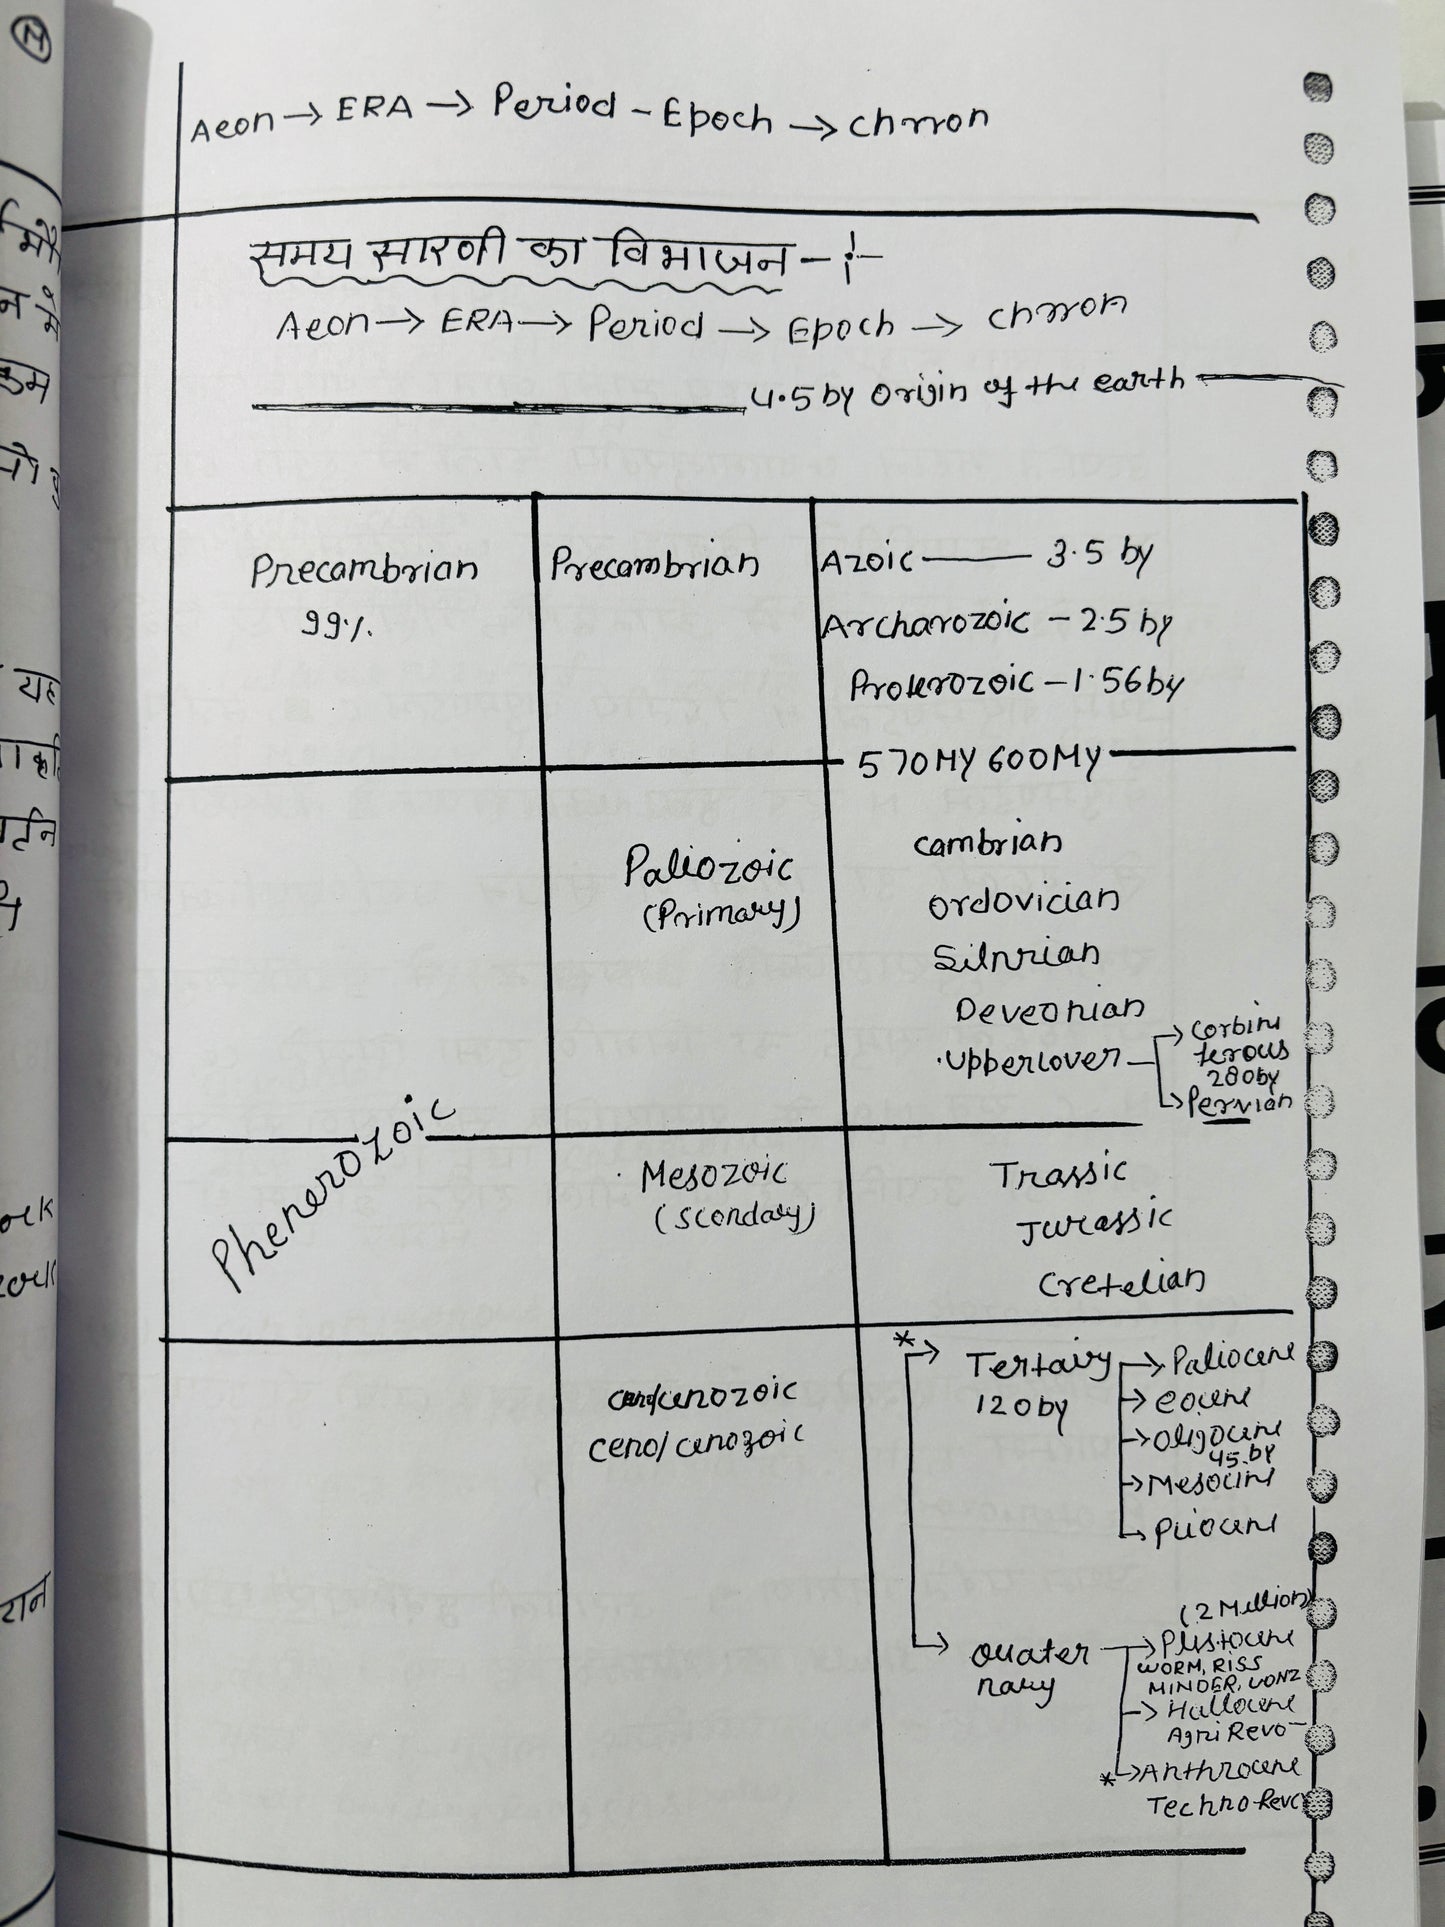 Aeon → ERA → Period - Epoch → chrron
समय सारणी का विभाजन -:-
Aeon → ERA → Period → Epoch → chrron
4.5 by Origin of the earth
Precambrian
99%
Precambrian
Azoic — 3.5 by
Archarozoic - 2.5 by
Proterozoic - 1.56 by
570 MY 600 MY
Phenerozoic
Paliozoic
(Primary)
cambrian
ordovician
Silurian
Deveonian
Upperlover
→ Corbini
ferous
280 by
→ Pervian
Mesozoic
(Scondary)
Trassic
Jurassic
Cretelian
cenozoic
ceno/cenozoic
* → Tertairy
120 by
→ Paliocene
→ eocene
→ oligocene
45. by
→ Mesocine
→ Pliocene
→ Quater
nary
(2 Million)
→ Plistocene
WORM, RISS
MINDER, UONZ
→ Hallocene
Agri Revo-
* → Anthrocene
Techno-Revo